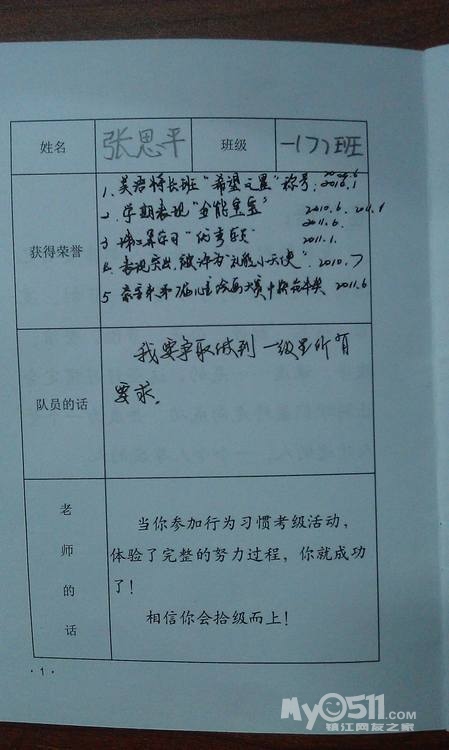 姓名 张思平 班级 一(7)班
获得荣誉
1. 英语特长班"希望之星"称号. 2010.6 2011.1
2. 学期表现"全能宝宝" 2010.6. 2011.1
2011.6.
3. 珠心算学习"优秀学员" 2011.1.
4. 表现突出,被评为"礼貌小天使". 2010.7
5. 大赛中获 2011.6
队员的话
我要争取做到一级里所有
要求。
老师的话
当你参加行为习惯考级活动,
体验了完整的努力过程,你就成功
了!
相信你会拾级而上!
·1·
My0511.com
镇江网友之家